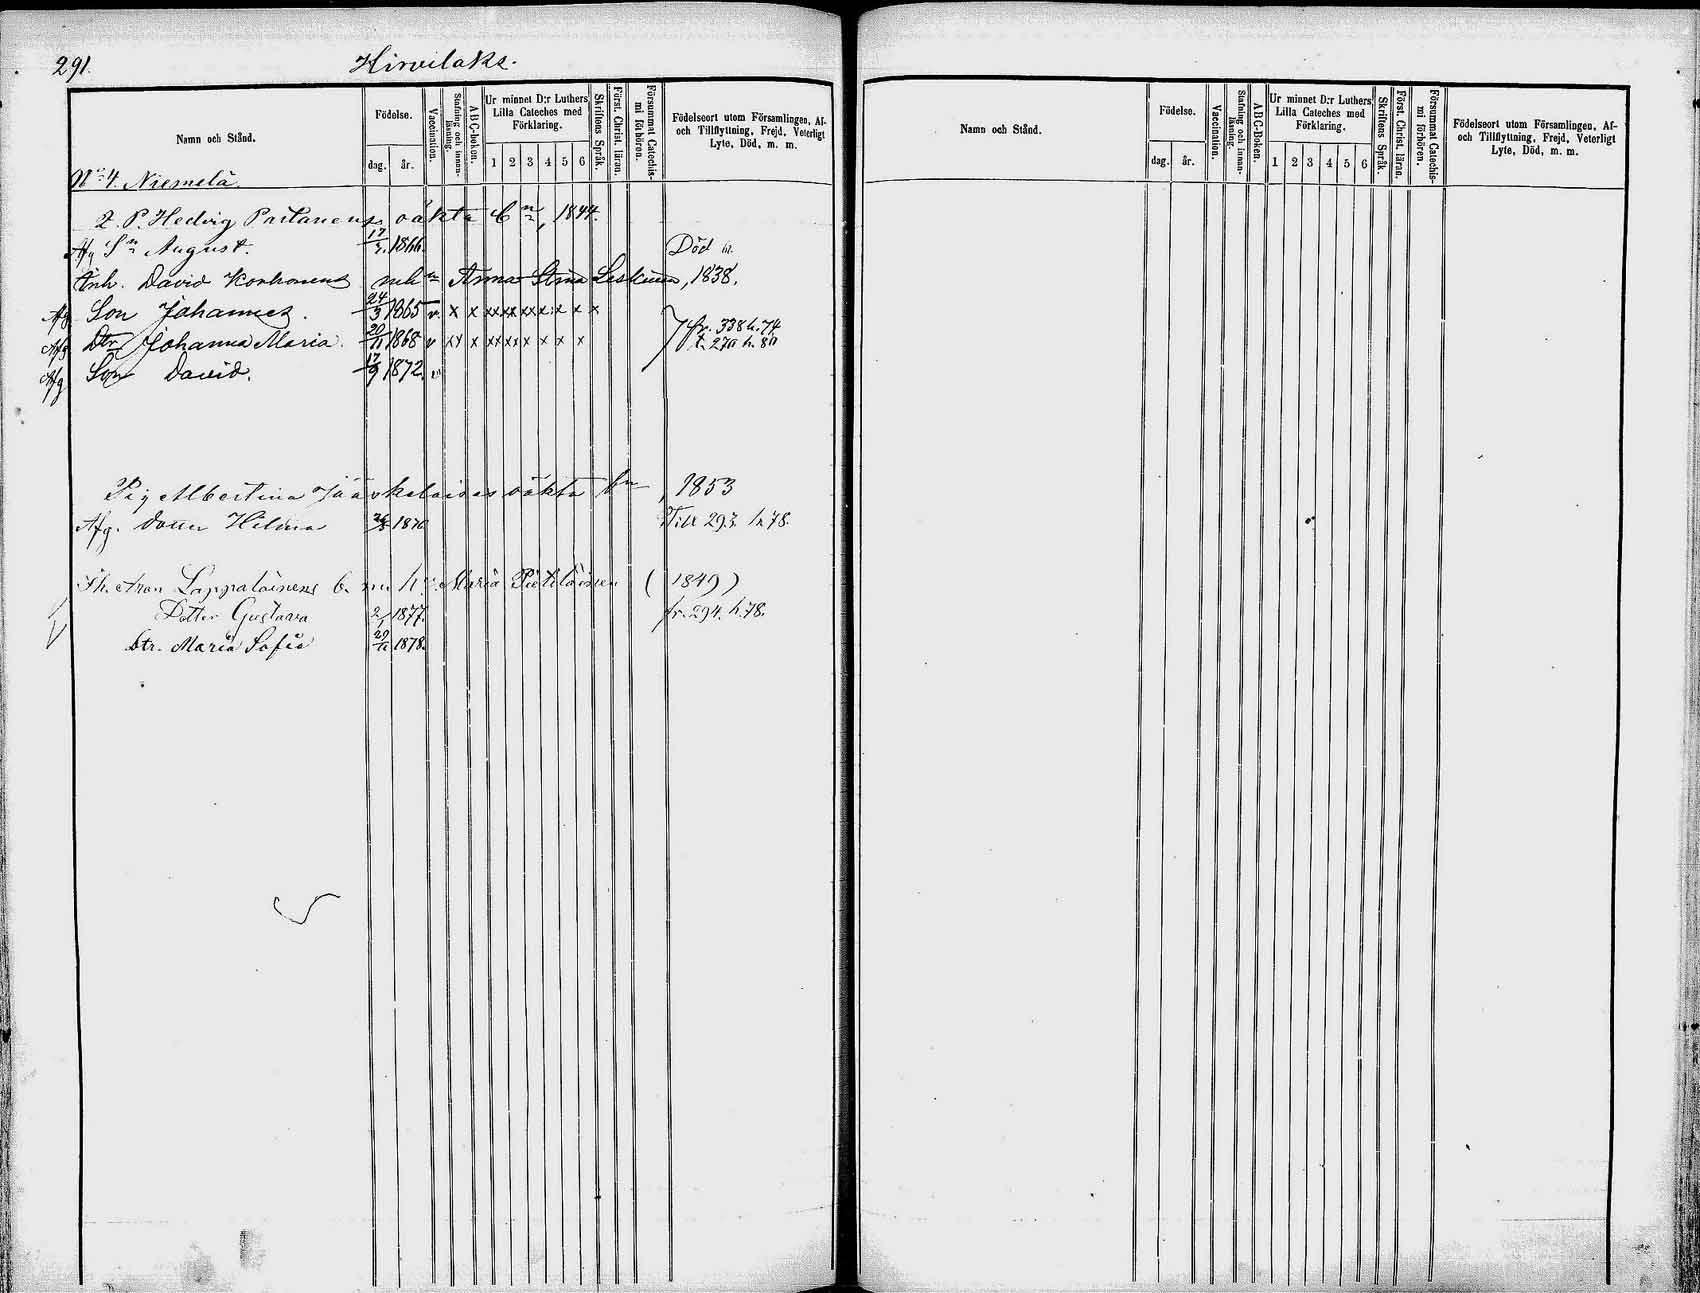 291.
Hirvilaks.
Namn och Stånd.
Födelse.
dag.
år.
Vaccination.
Stafning och innan-
läsning.
ABC-boken.
Ur minnet D:r Luthers
Lilla Cateches med
Förklaring.
1 2 3 4 5 6
Skriftens Språk.
Först. Christ. läran.
Försummat Catechis-
mi förhören.
Födelseort utom Församlingen, Af-
och Tillflyttning, Frejd, Veterligt
Lyte, Död, m. m.
No 4. Niemelä.
P. Hedvig Partanens oäkta Bn, 1844.
Afg Sn August. 17/3. 1866. Död
Inh. David Korhonens Anna Stina Leskinen, 1838.
Afg Son Johannes. 24/3 1865 v. x x xx xx xx x x x x
Afg Dtr Johanna Maria. 20/11 1868 v xx x xx xx x x x x fr. 338 h. 74
Afg Son David. 17/9 1872. v
Pig Albertina Jääskeläises oäkta bn, 1853
Afg. dotter Hilma 1870 Till 293. h. 78.
Aron Lappalainens B. Maria Pietiläinen (1849)
Dotter Gustava 2/1 1877. fr. 294. h. 78.
Dtr. Maria Sofia 29/11 1878.
Namn och Stånd.
Födelse.
dag.
år.
Vaccination.
Stafning och innan-
läsning.
ABC-Boken.
Ur minnet D:r Luthers
Lilla Cateches med
Förklaring.
1 2 3 4 5 6
Skriftens Språk.
Först. Christ. läran.
Försummat Catechis-
mi förhören.
Födelseort utom Församlingen, Af-
och Tillflyttning, Frejd, Veterligt
Lyte, Död, m. m.